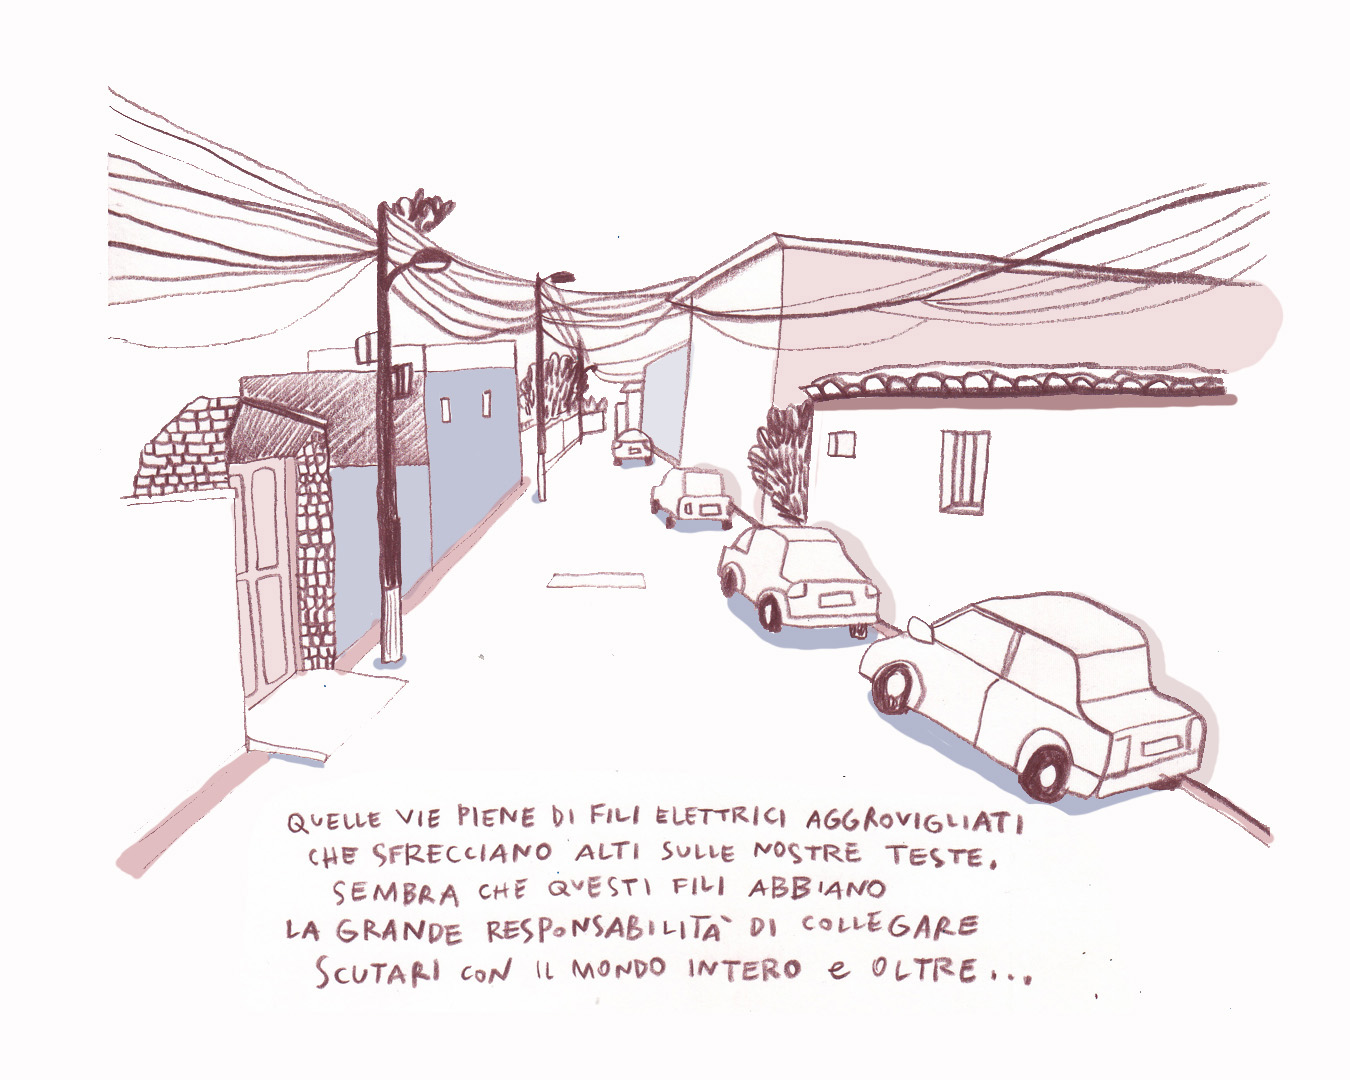 QUELLE VIE PIENE DI FILI ELETTRICI AGGROVIGLIATI
CHE SFRECCIANO ALTI SULLE NOSTRE TESTE.
SEMBRA CHE QUESTI FILI ABBIANO
LA GRANDE RESPONSABILITÀ DI COLLEGARE
SCUTARI CON IL MONDO INTERO e OLTRE...